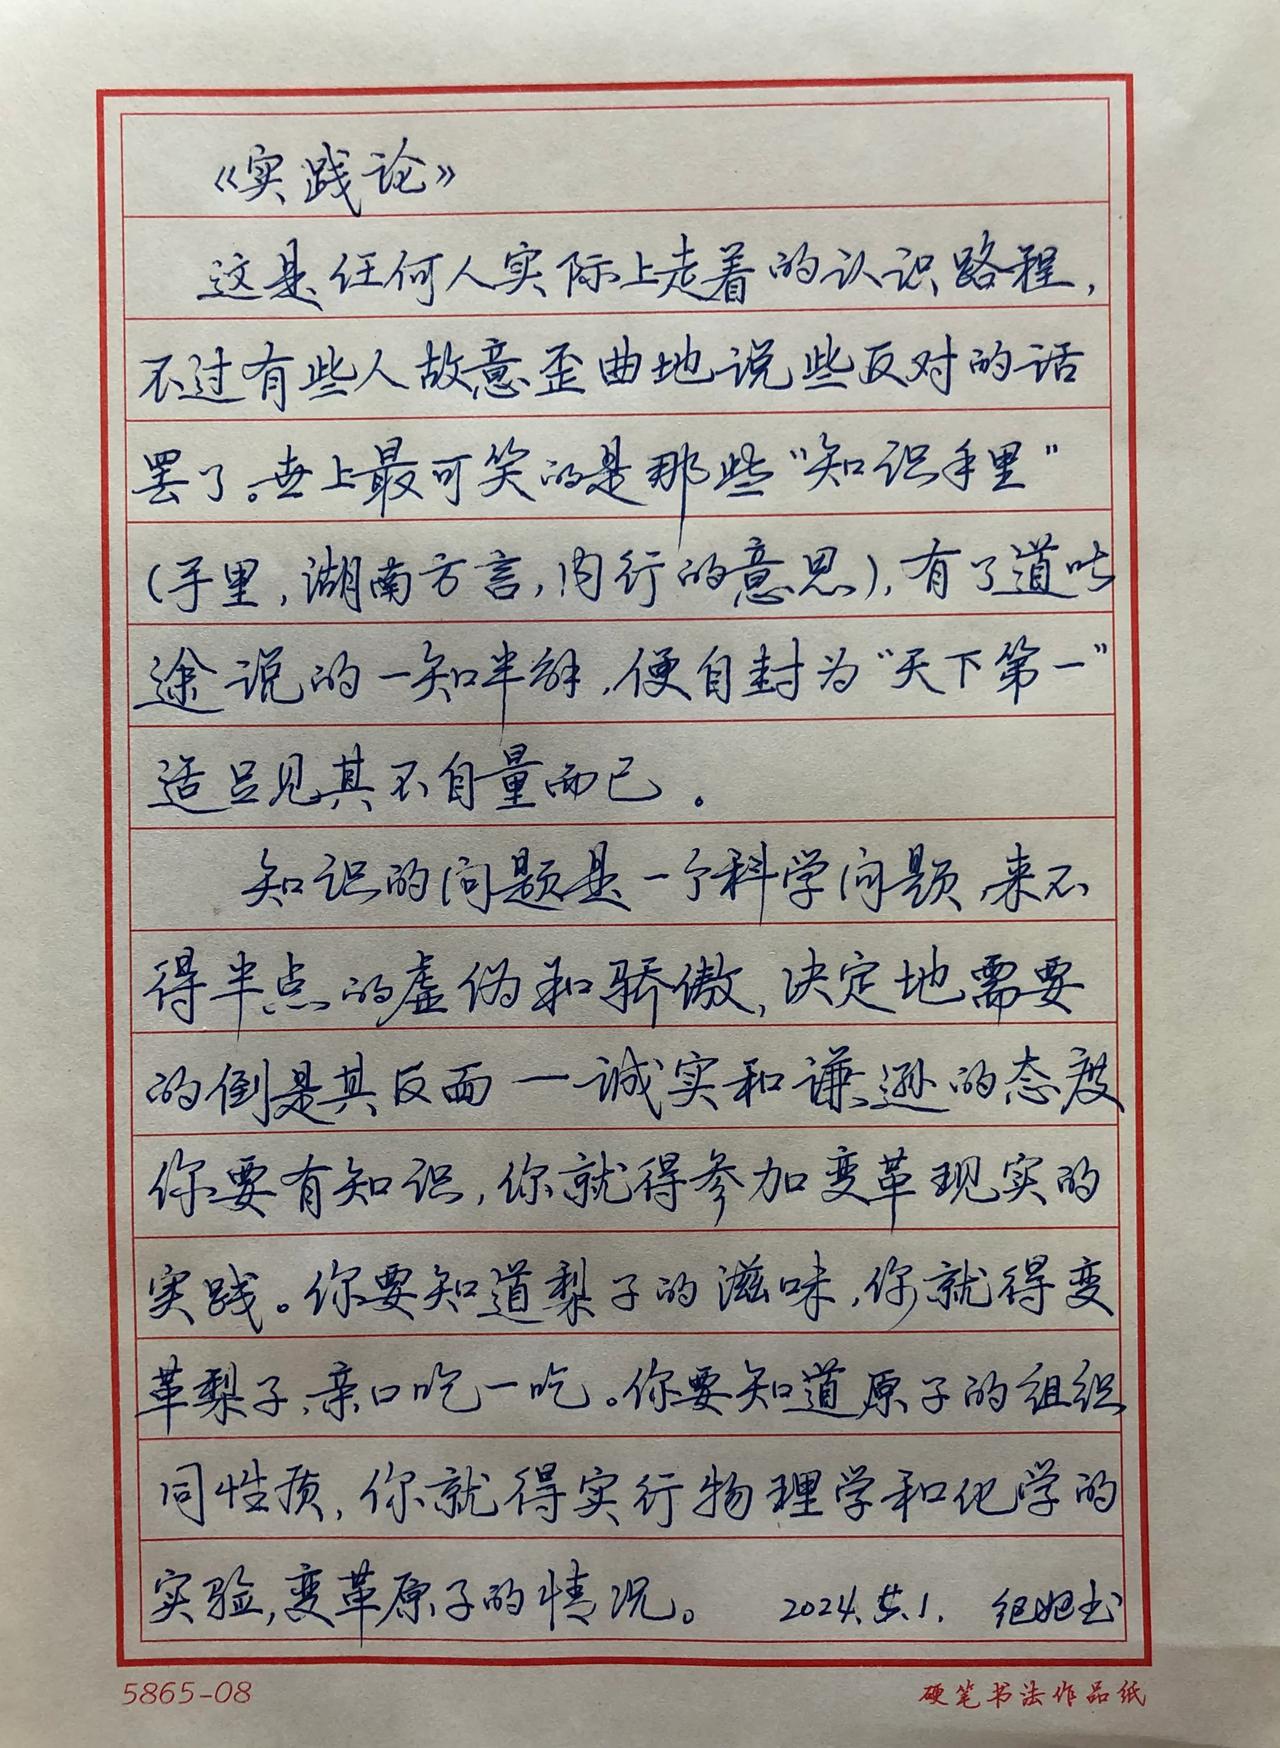 《实践论》
这是任何人实际上走着的认识路程，
不过有些人故意歪曲地说些反对的话
罢了。世上最可笑的是那些“知识手里”
(手里，湖南方言，内行的意思)，有了道听
途说的一知半解，便自封为“天下第一”
适足见其不自量而已。
知识的问题是一个科学问题，来不
得半点的虚伪和骄傲，决定地需要
的倒是其反面——诚实和谦逊的态度
你要有知识，你就得参加变革现实的
实践。你要知道梨子的滋味，你就得变
革梨子，亲口吃一吃。你要知道原子的组织
同性质，你就得实行物理学和化学的
实验，变革原子的情况。 2024.5.1. 书
5865-08 硬笔书法作品纸